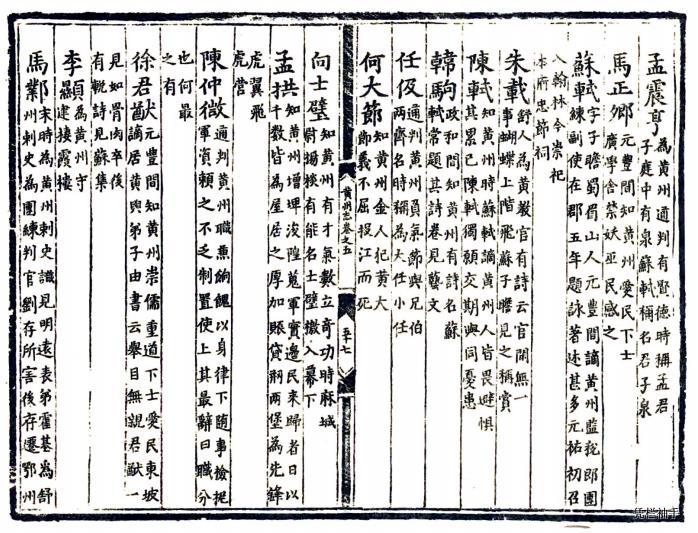 孟震亨為黃州通判有賢德時稱孟君
子庭中有泉蘇軾稱名君子泉
馬正卿元豐間知黃州愛民下士
廣學舍禁妖巫民感之
蘇軾字子瞻蜀眉山人元豐間謫黃州監稅郎團
練副使在郡五年題詠著述甚多元祐初召
入翰林今崇祀
本府忠節祠
朱載舒人為黃教官有詩云官閑無一
事蝴蝶上階飛蘇子瞻見之稱賞
陳軾知黃州時蘇軾謫黃州人皆畏避惧
其累已陳軾獨願交期與同憂患
韓駒政和間知黃州有詩名蘇
軾常題其詩卷見藝文
任伋通判黃州負氣節與兄伯
兩齊名時稱為大任小任
何大節知黃州金人犯黃大
節義不屈投江而死
黃州志卷之五
五十七
向士璧知黃州有才氣數立奇功時麻城
尉場樑有能名士璧檄入幕下
孟拱知黃州增埤浚隍蒐軍實邊民來歸者日以
千數皆為屋居之厚加賑貸刱兩堡為先鋒
虎翼飛
虎營
陳仲微通判黃州職兼餉餽以身律下隨事檢捉
軍資賴之不乏制置使上其最辭曰職分
也何最
之有
徐君猷元豐間知黃州崇儒重道下士愛民東坡
謫居黃與弟子由書云舉目無親君猷一
見如骨肉卒後
有輓詩見蘇集
李顒為黃州守
建棲霞樓
馬鄴末時為黃州刺史識見明遠表弟霍某為舒
州刺史為團練判官劉存所害後存遷鄂州
凭栏袖手